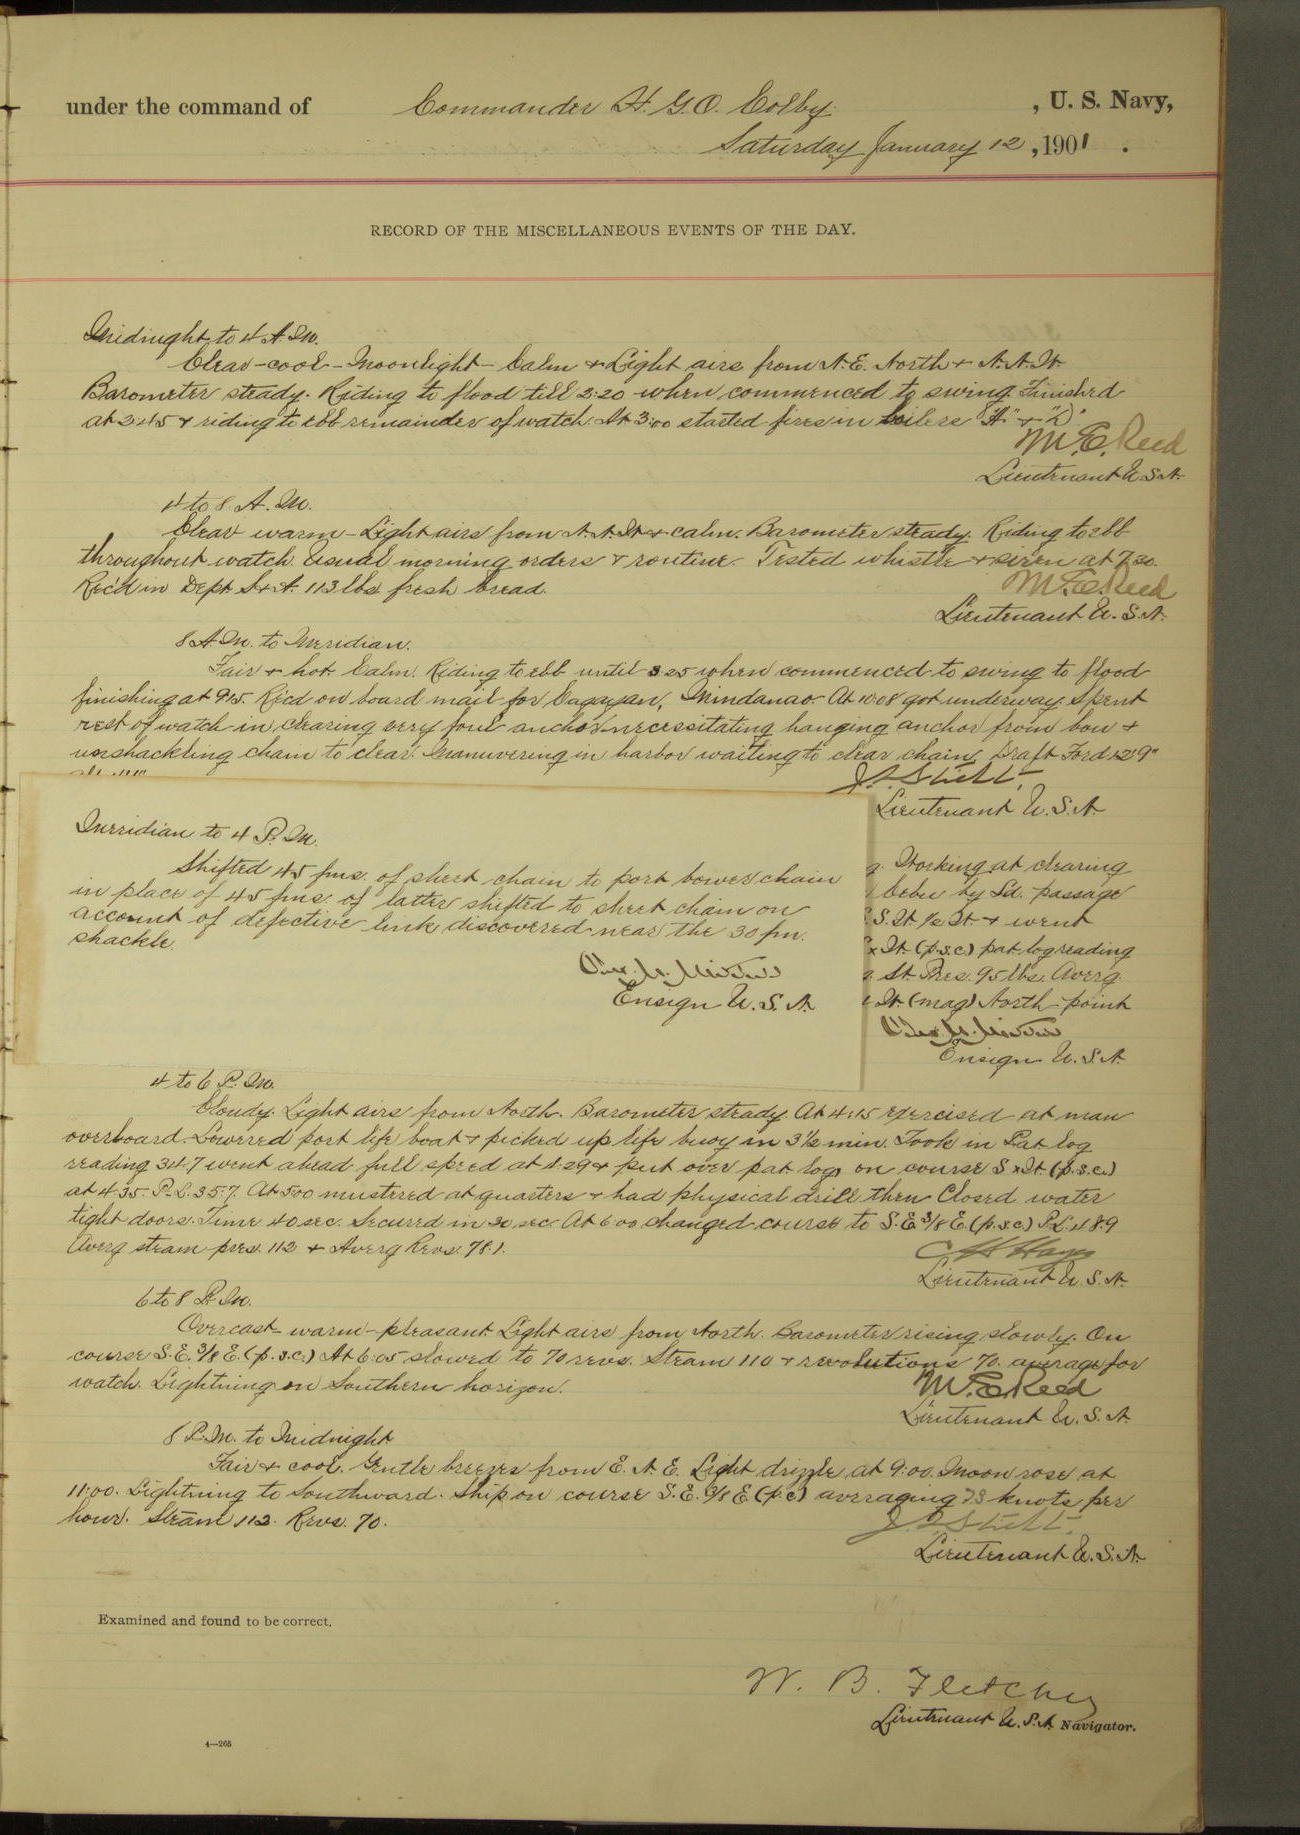 under the command of Commander H. G. O. Colby , U. S. Navy,
Saturday January 12 , 1901 .
RECORD OF THE MISCELLANEOUS EVENTS OF THE DAY.
Midnight to 4 A.M.
Clear-cool-Moonlight-Calm & Light airs from N.E. North & N.N.W.
Barometer steady. Riding to flood till 2:20 when commenced to swing. Finished
at 2:45 & riding to ebb remainder of watch. At 3:00 started fires in boilers "A" & "D"
M. E. Reed
Lieutenant U.S.N.
4 to 8 A.M.
Clear warm-Light airs from N.N.W. & calm. Barometer steady. Riding to ebb
throughout watch. Usual morning orders & routine. Tested whistle & siren at 7.30.
Rec'd in Dept. S. & A. 113 lbs fresh bread.
M. E. Reed
Lieutenant U.S.N.
8 A.M. to Meridian.
Fair & hot. Calm. Riding to ebb until 8 25 when commenced to swing to flood
finishing at 9.15. Rec'd on board mail for Cagayan, Mindanao. At 10.08 got underway. Spent
rest of watch in clearing very foul anchor necessitating hanging anchor from bow &
unshackling chain to clear. Manuvering in harbor waiting to clear chain. Draft Ford 12'9"
Lieutenant U.S.N.
Meridian to 4 P.M.
Shifted 45 fms. of sheet chain to port bower chain
in place of 45 fms. of latter shifted to sheet chain on
account of defective link discovered near the 30 fm.
shackle.
Ensign U.S.N.
g. Working at clearing
Cebu by Sd. passage
S.W. 1/2 W. & went
x W. (p.s.c.) pat. log reading
St. Pres. 95 lbs. Averg.
W. (mag) North point
Ensign U.S.N.
4 to 6 P.M.
Cloudy. Light airs from North. Barometer steady. At 4:15 exercised at man
overboard. Lowered port life boat & picked up life buoy in 3 1/2 min. Took in Pat log
reading 34.7 went ahead full speed at 4.29 & put over pat log on course S x W. (p.s.c.)
at 4.35. P.L. 35.7. At 5.00 mustered at quarters & had physical drill then Closed water
tight doors. Time 40 sec. Secured in 30 sec. At 6.00 changed course to S.E. 3/8 E (p.s.c) P.L. 48.9
Averg steam pres. 112 & Averg Revs. 78.1.
C H Hayes
Lieutenant U.S.N.
6 to 8 P.M.
Overcast-warm-pleasant. Light airs from North. Barometer rising slowly. On
course S.E. 3/8 E. (p.s.c.) At 6:05 slowed to 70 revs. Steam 110 & revolutions 70. average for
watch. Lightning on Southern horizon.
M. E. Reed
Lieutenant U.S.N.
8 P.M. to Midnight
Fair & cool. Gentle breezes from E.N.E. Light drizzle at 9:00. Moon rose at
11:00. Lightning to Southward. Ship on course S.E. 3/8 E (p.c) averaging 7.3 knots per
hour. Steam 112. Revs. 70.
Lieutenant U.S.N.
Examined and found to be correct.
W. B. Fletcher
Lieutenant U.S.N. Navigator.
4—265